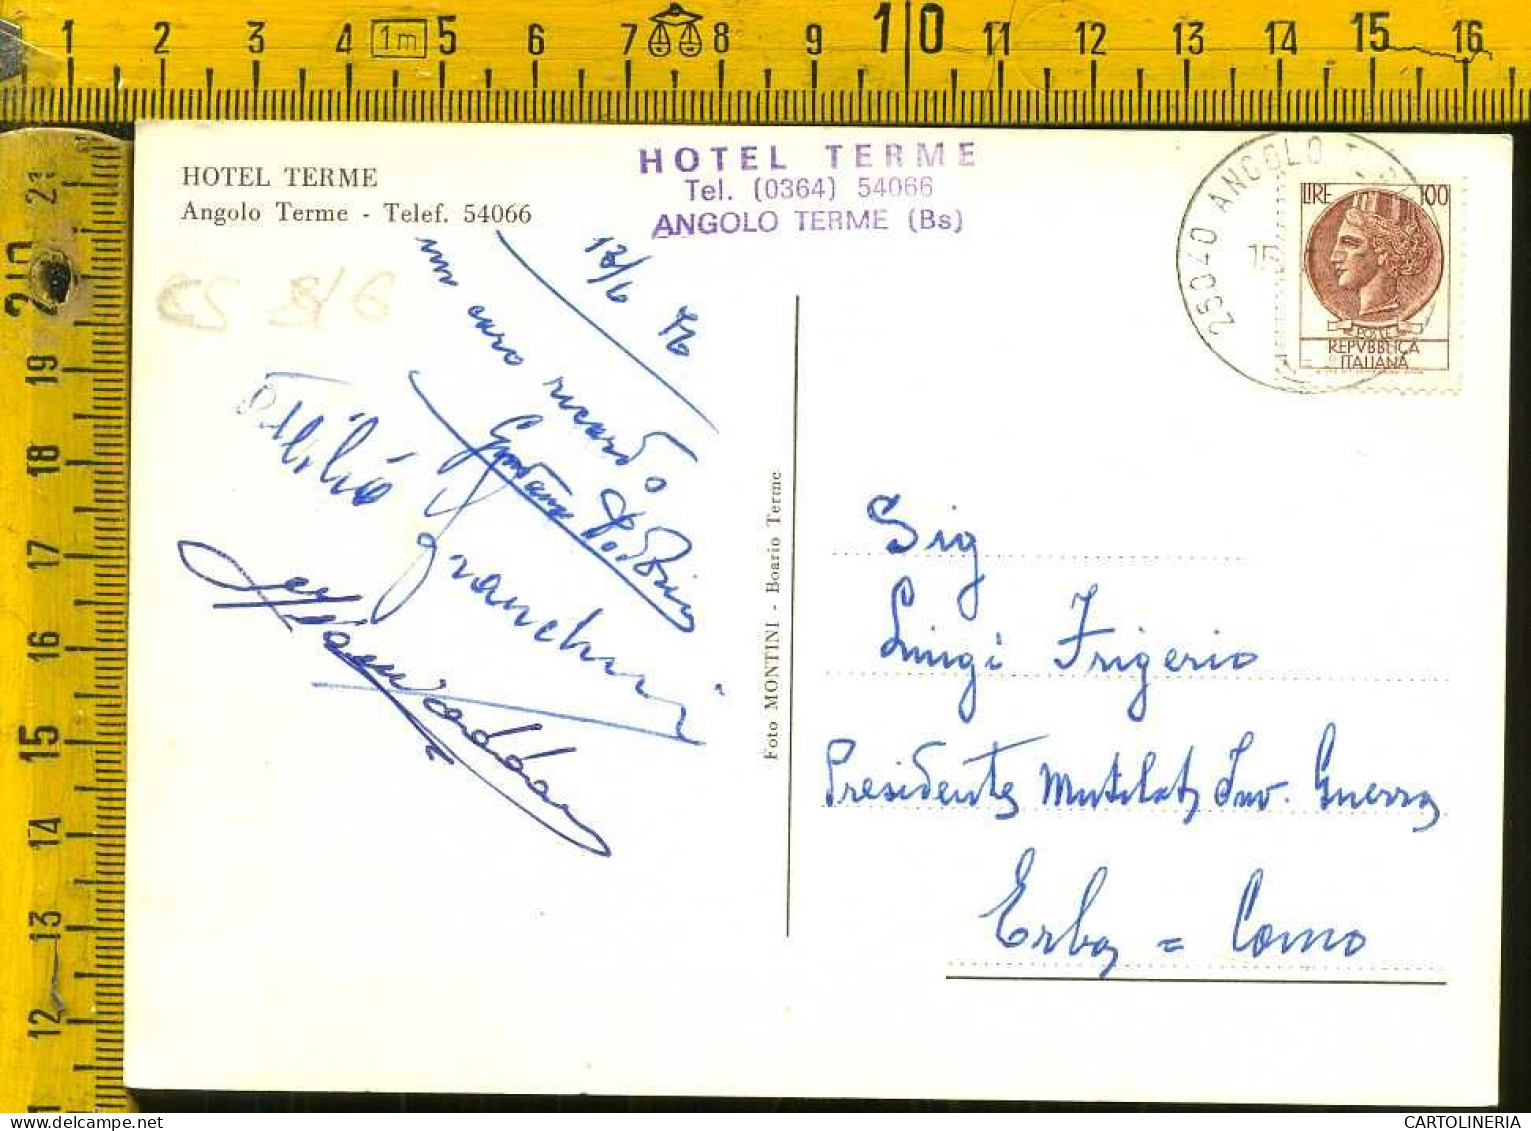 1 2 3 4 1m 5 6 7 8 9 10 11 12 13 14 15 16
21
20
19
18
17
16
15
14
13
12
11
HOTEL TERME
Angolo Terme - Telef. 54066
HOTEL TERME
Tel. (0364) 54066
ANGOLO TERME (Bs)
25040 ANGOLO
LIRE 100
POSTE
REPVBBLICA
ITALIANA
13/6 76
un caro ricordo
Foto MONTINI - Boario Terme
Sig
Luigi Frigerio
Presidente Mutilati Inv. Guerra
Erba = Como
CARTOLINERIA